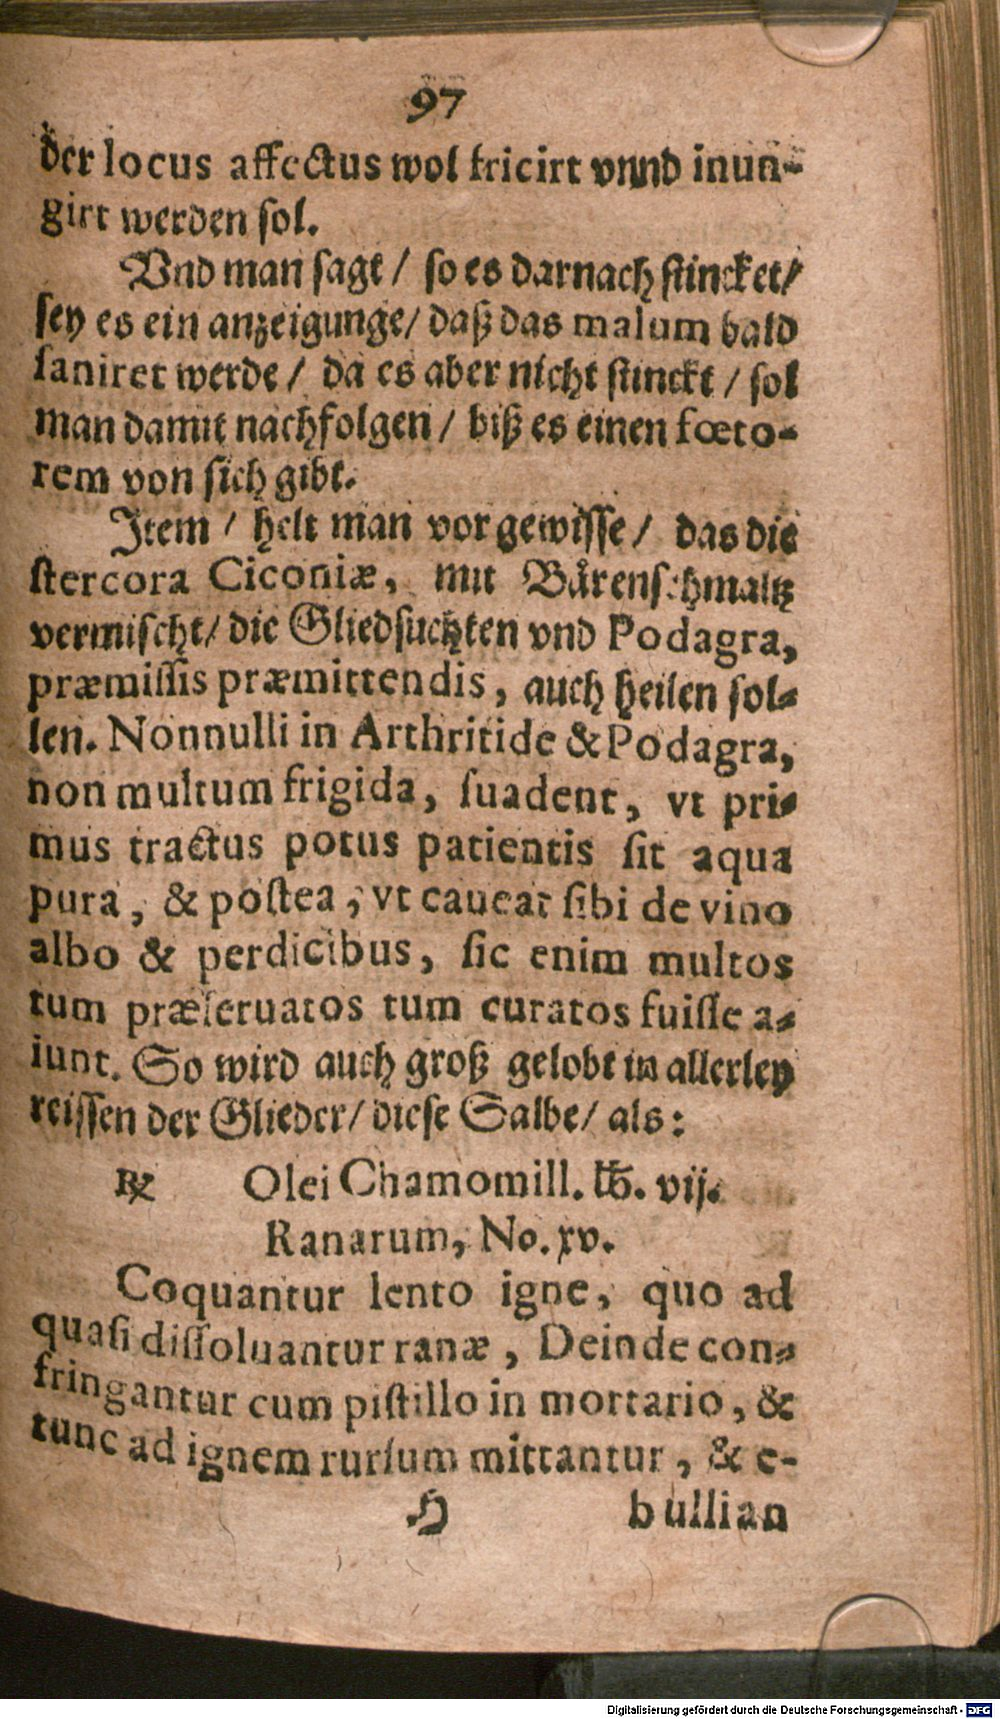 97
der locus affectus wol fricirt vnnd inun-
girt werden sol.
Vnd man sagt / so es darnach stincket/
sey es ein anzeigunge/ daß das malum bald
saniret werde / da es aber nicht stinckt / sol
man damit nachfolgen / biß es einen fœto-
rem von sich gibt.
Item / helt man vor gewisse / das die
stercora Ciconiæ, mit Bärenschmaltz
vermischt/ die Gliedsuchten vnd Podagra,
præmissis præmittendis, auch heilen sol-
len. Nonnulli in Arthritide & Podagra,
non multum frigida, suadent, vt pri-
mus tractus potus patientis sit aqua
pura, & postea, vt caueat sibi de vino
albo & perdicibus, sic enim multos
tum præseruatos tum curatos fuisse a-
iunt. So wird auch groß gelobt in allerley
reissen der Glieder/ diese Salbe/ als:
℞ Olei Chamomill. ℔. vij.
Ranarum, No. xv.
Coquantur lento igne, quo ad
quasi dissoluantur ranæ, Deinde con-
fringantur cum pistillo in mortario, &
tunc ad ignem rursum mittantur, & e-
H bullian
Digitalisierung gefördert durch die Deutsche Forschungsgemeinschaft - DFG